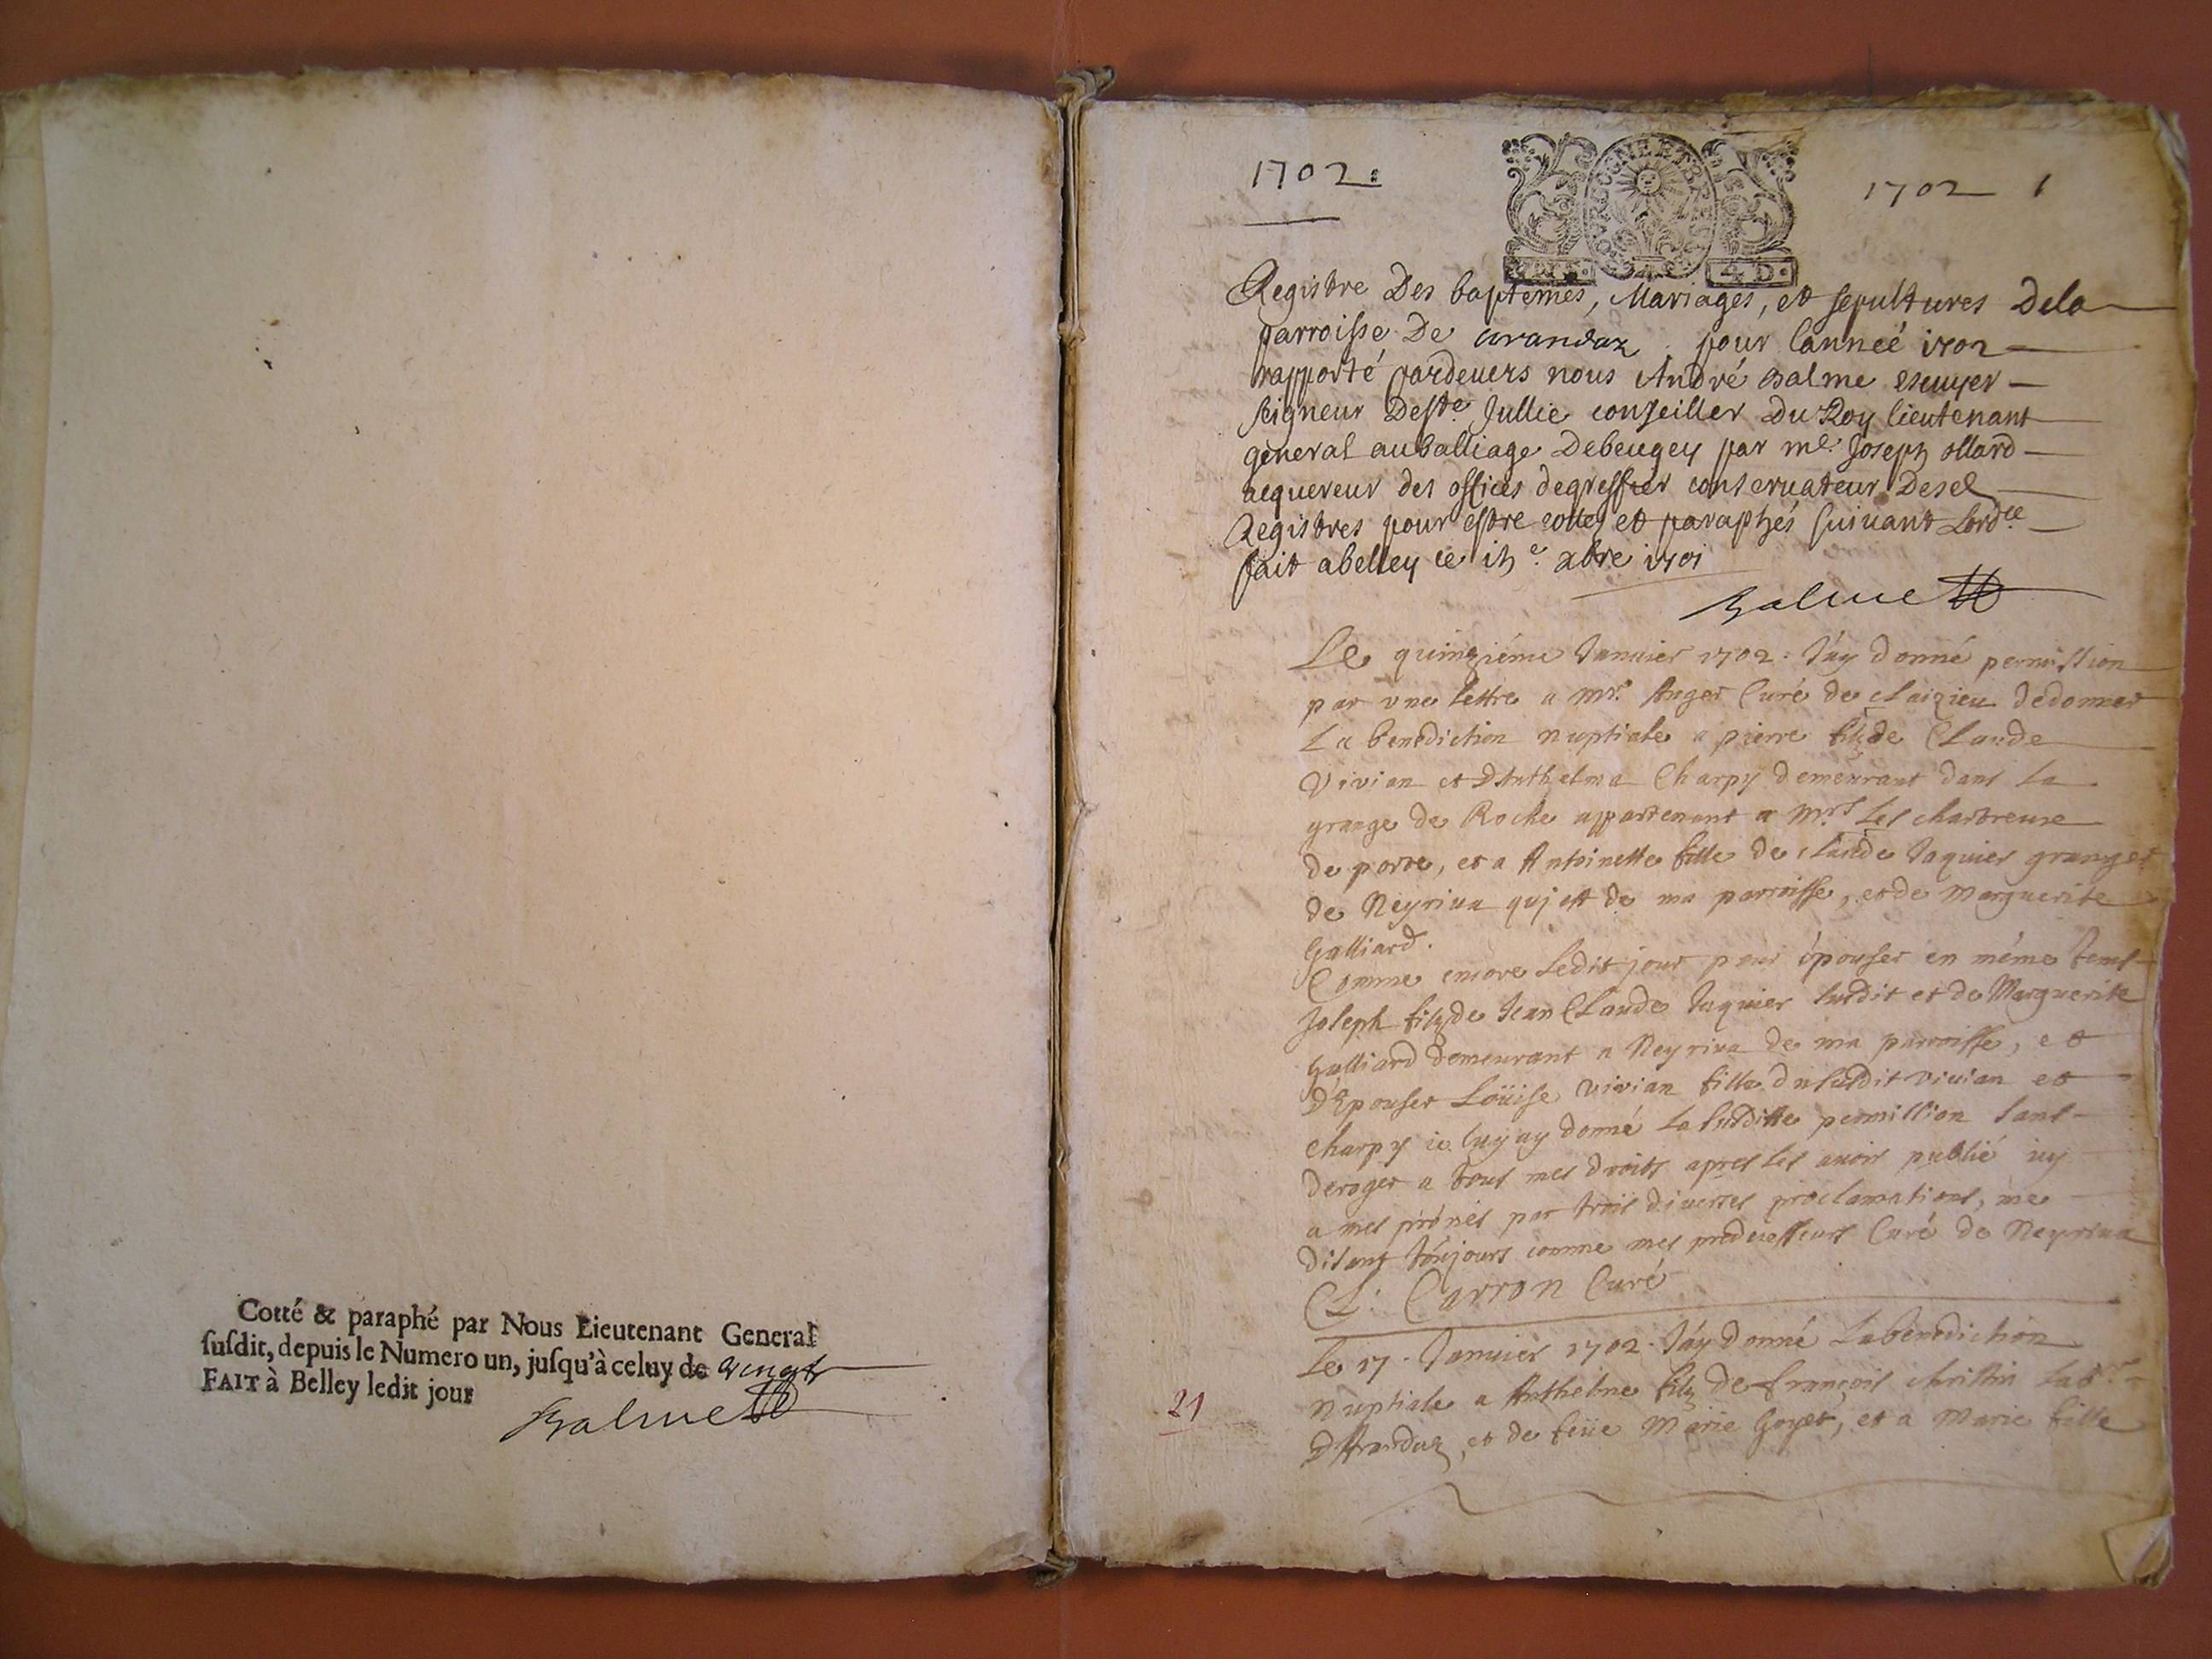 Cotté & paraphé par Nous Lieutenant General
susdit, depuis le Numero un, jusqu'à celuy de vingt
FAIT à Belley ledit jour
Balme
1702
1702 1
4 D.
Registre Des baptemes, Mariages, et sepultures Dela
parroisse De arandaz pour lanneé 1702
rapporté pardevers nous André Balme escuyer
seigneur Deste Jullie conseiller Du Roy lieutenant
general auballiage Debeugey par me Joseph ollard
acquereur des offices degreffier conservateur Desd
Registres pour estre cottez et paraphés suivant Lordce
fait abelley ce xbre 1701
Balme
Le quinziéme Janvier 1702. J'ay donné permission
par une lettre a Mr. Anger Curé de Claizieu dedonner
La benediction nuptiale a pierre filz de Claude
Vivian et D'Anthelma Charpy demeurant dans la
grange de Roche appartenant a Mrs Les chartreuse
de porte, et a Antoinette fille de claude Jaquier granger
de Neyriua qui est de ma parroisse, et de Marguerite
Galliard.
Comme encore Ledit jour pour épouser en même tems
Joseph filz de Jean Claude Jaquier susdit et de Marguerite
Galliard demeurant a Neyriua de ma parroisse, et
D'Epouser Loüise Vivian fille dusudit vivian et
charpy ie luy ay donné La susditte permission sans
deroger a tous mes droits apres les avoir publié icy
a mes prônes par trois diverses proclamations, me
disant toujours comme mes predecesseurs Curé de Neyriua
Cl. Carron Curé
Le 17. Janvier 1702. J'ay donné La benediction
21
nuptiale a Anthelme filz de françois christin Labr
D'Arandaz, et de feüe Marie Goyet, et a Marie fille